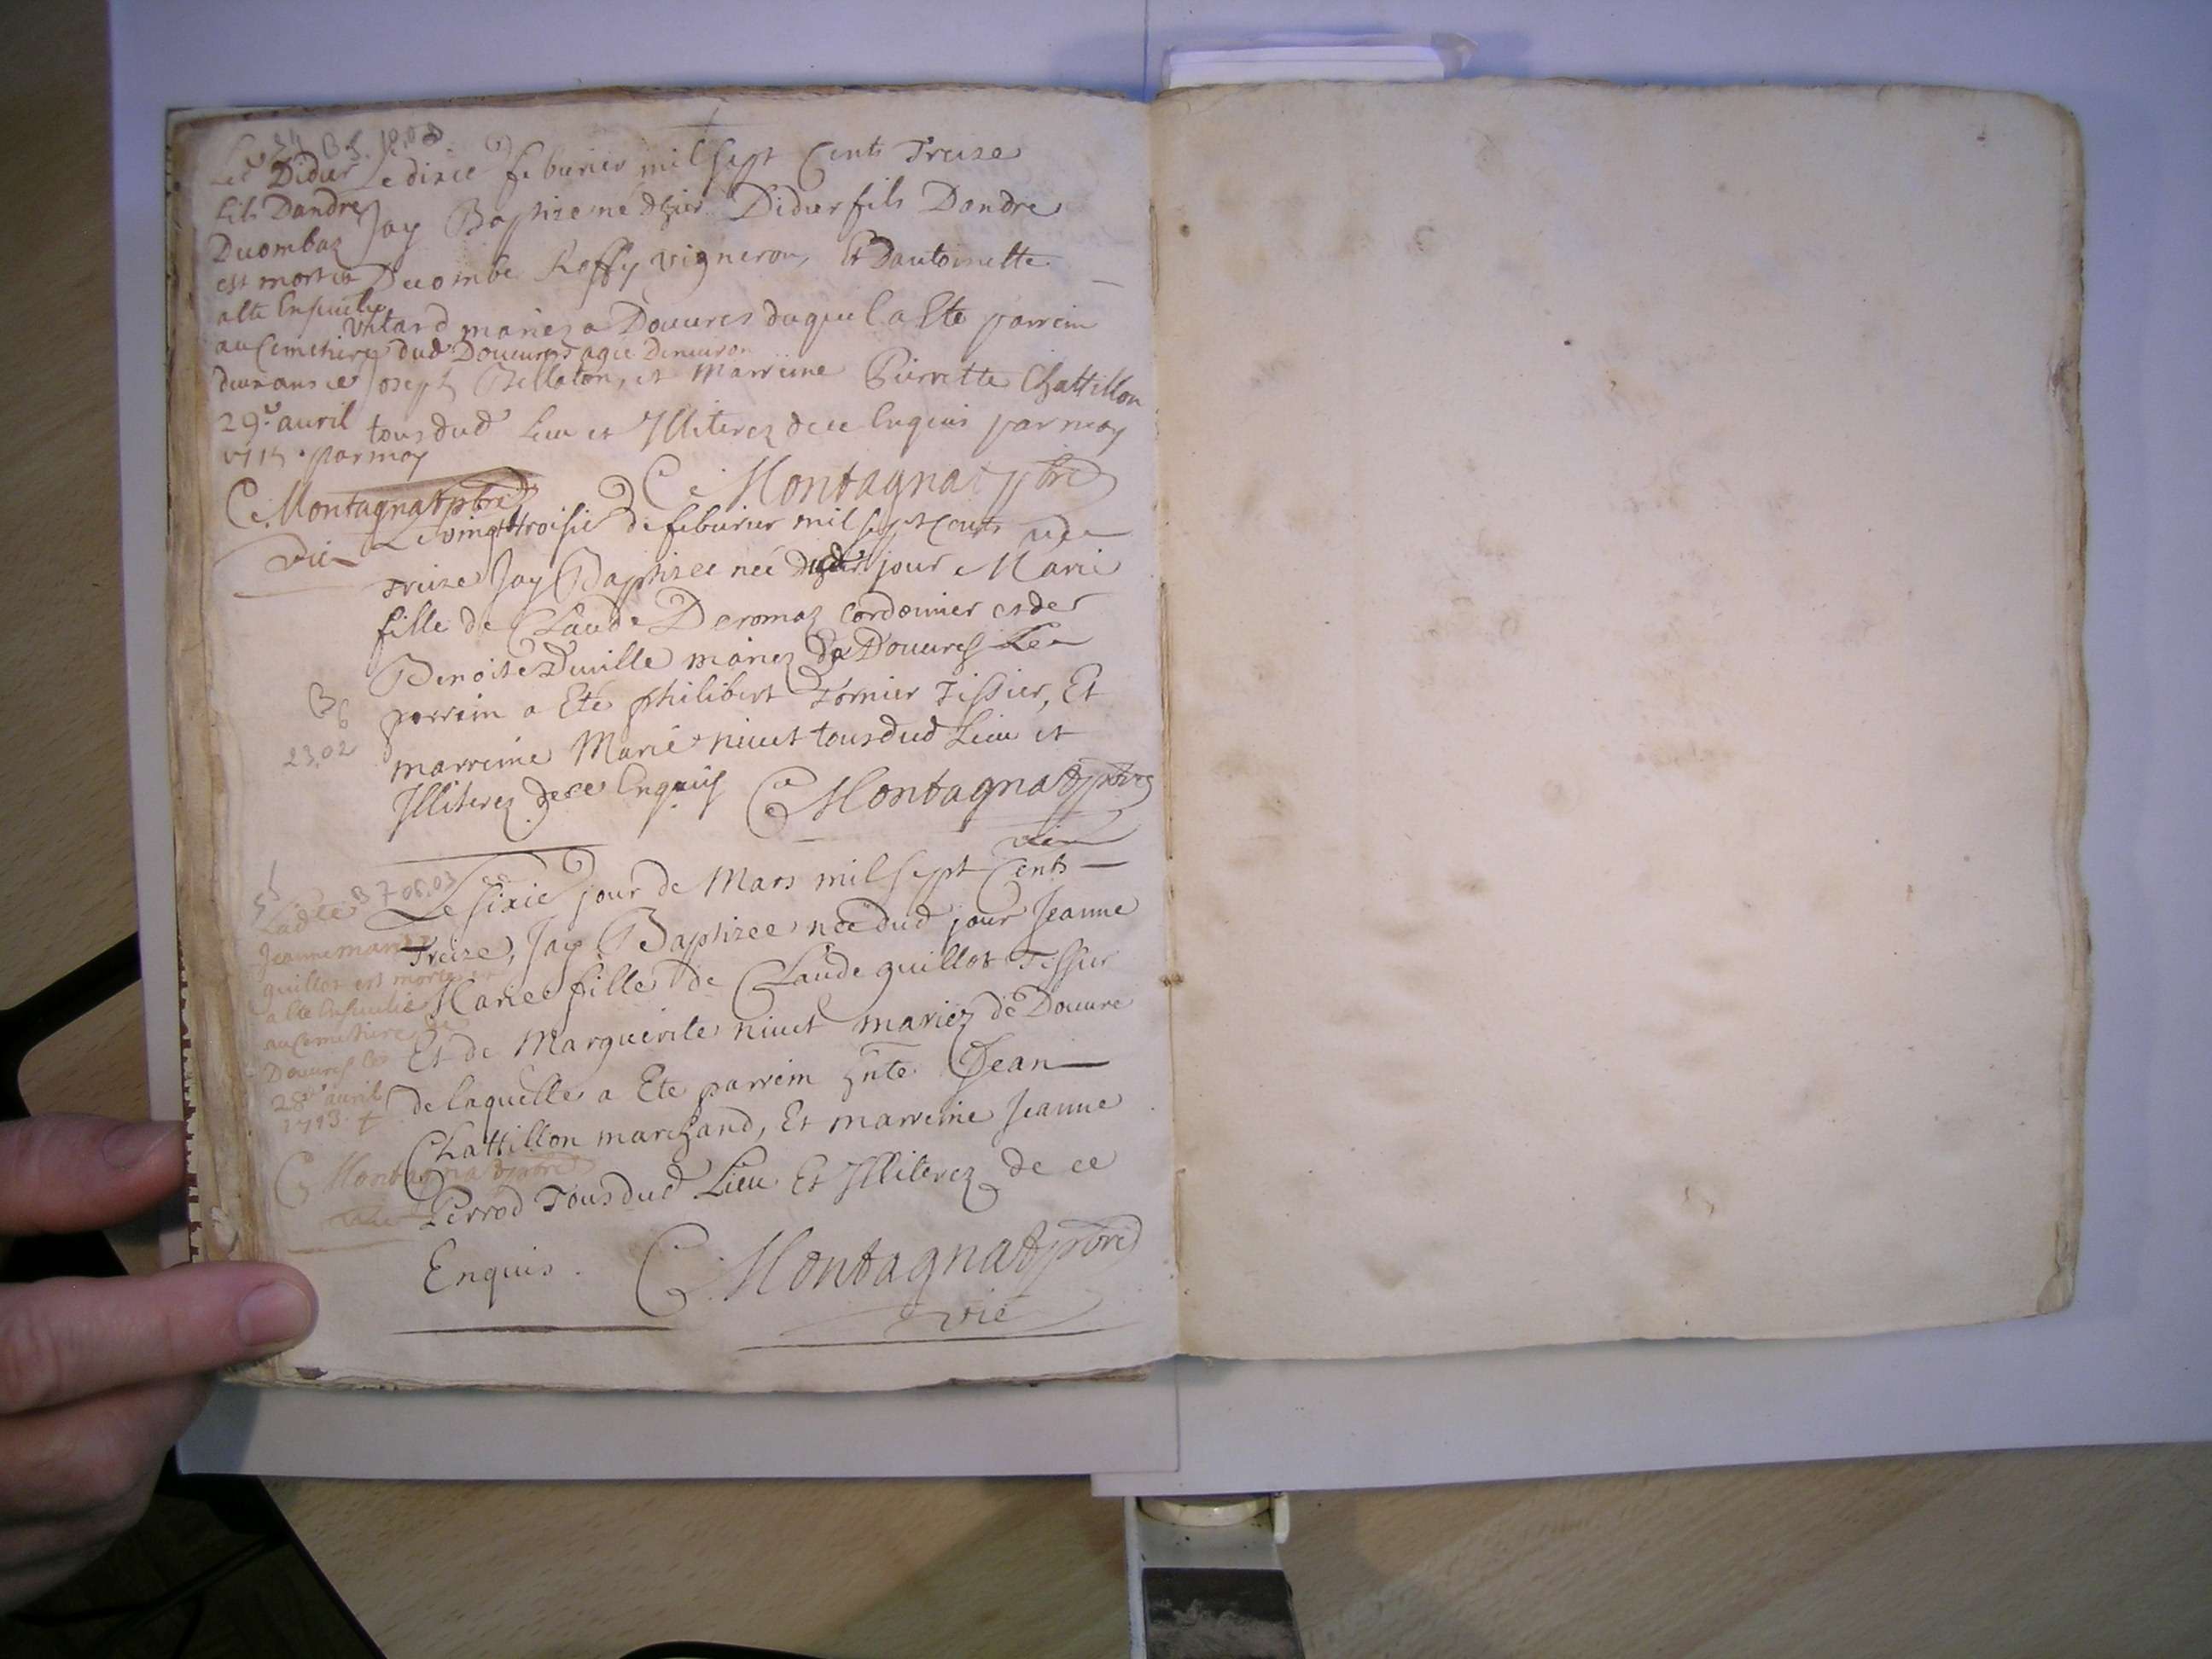 Le dixie feburier mil sept Cents Treize
Jay Baptize né dhier Didier fils Dandre
Ducombe Roffy vigneron, Et Dantoinette
Vutard mariez a Douures duquel a Ete parrein
Joseph Bellaton, et marreine Pierrette Chattillon
tous dud Lieu et Illiterez de ce Enquis par moy
C. Montagnat pbre
Led Didier
fils Dandre
Ducombaz
est mort et
a ete Ensuely
au Cemetiere dud Douures agé denuiron
deux ans le
29e auril
1715 par moy
C. Montagnat pbre
vic
B 5. 10.02
Le vingt troisie de feburier mil sept Cents
treize Jay Baptizee née dud jour Marie
fille de Claude Deromaz Cordonnier et de
Benoite Duville mariez de Douures Le
parrein a Ete philibert Tornier Tissier, Et
marreine Marie niuet tous dud Lieu et
Illiterez de ce Enquis C. Montagnat pbre
vic
B 6
23.02
Le sixie jour de Mars mil sept Cents
Treize, Jay Baptizee née dud jour Jeanne
Marie fille de Claude guillot Tissier
Et de Marguerite niuet mariez de Douure
de laquelle a Ete parrein hnte Jean
Chattillon marchand, Et marreine Jeanne
Perrod Tous dud Lieu Et Illiterez de ce
Enquis. C. Montagnat pbre
vic
B 7 06.03
Ladte
Jeanne marie
guillot est morte et
a ete Ensuelie
au Cemetiere de
Douures le
28e auril
1713. †
C. Montagnat pbre
vic